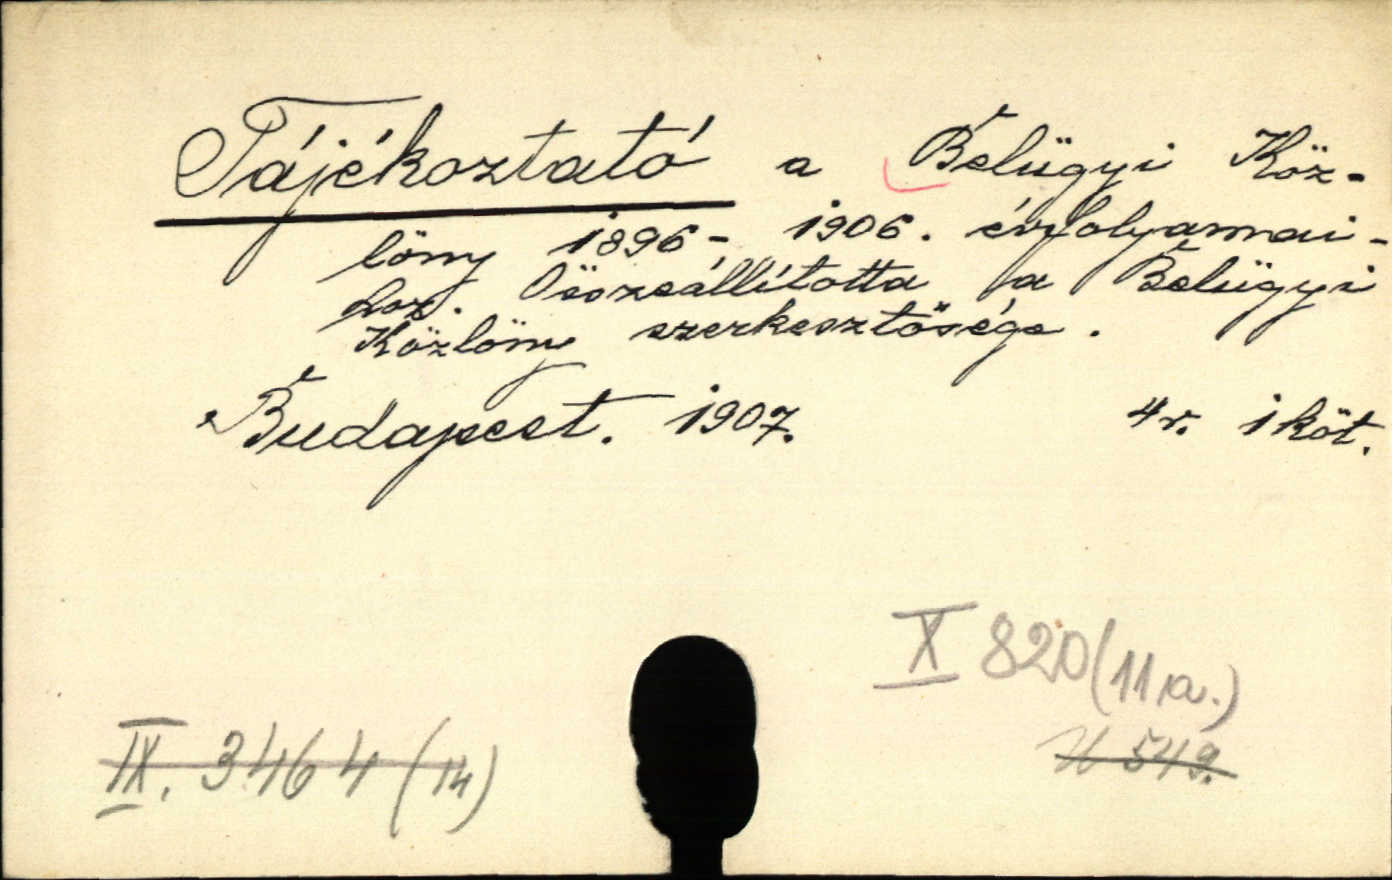 Tájékoztató a Belügyi Köz-
löny 1896- 1906. évfolyamai-
hoz. Összeállította a Belügyi
Közlöny szerkesztősége.
Budapest. 1907. 4r. 1 köt.
X 820 (11/a.)
IX. 3464 (14)
U 549.